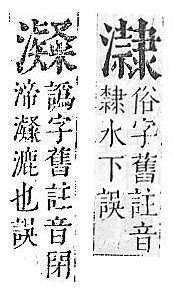 俗字舊註音
隸水下誤
譌字舊註音閉
渧漉也誤